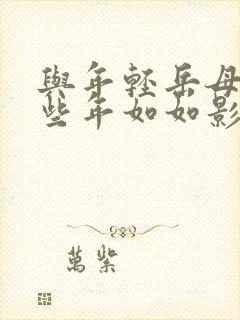 與年輕岳母
些年如如影
萬紫